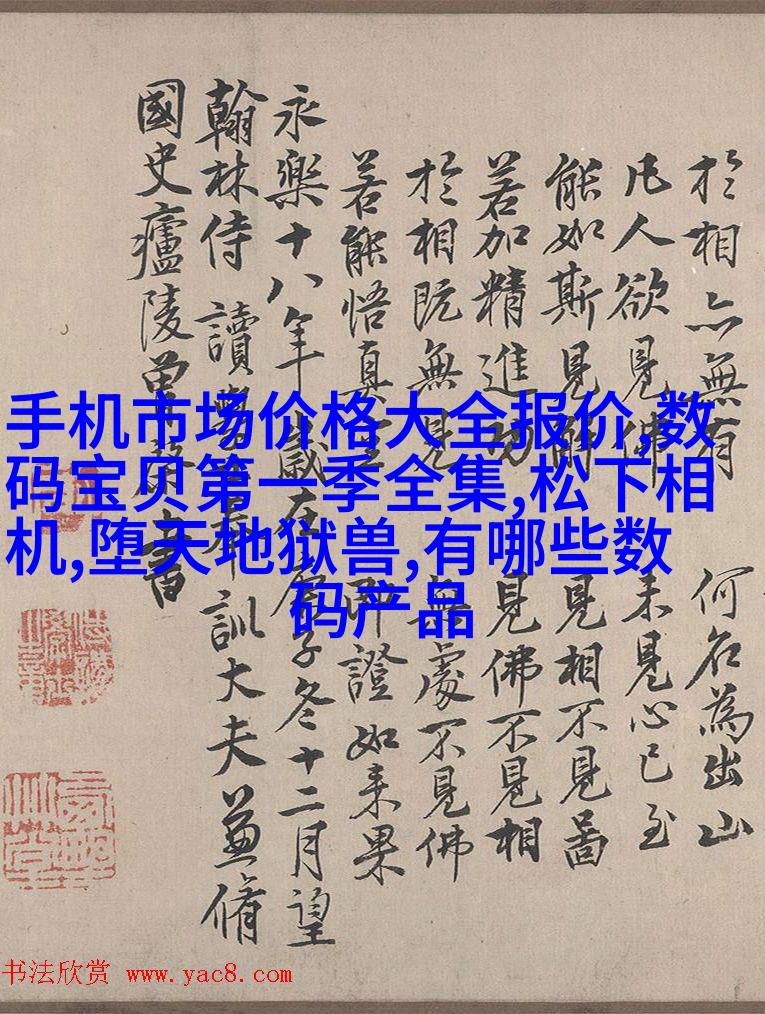 於相亦無有 何名為出山
凡人欲見佛 未見心已至
能如斯見解 見相不見啚
若加精進功 見佛不見相
於相既無見 無處不見佛
若能悟真 即證如来果
永樂十八年歲在庚子冬十二月望
翰林侍讀 奉訓大夫兼脩
國史廬陵曾棨書
手机市场价格大全报价,数
码宝贝第一季全集,松下相
机,堕天地狱兽,有哪些数
码产品
书法欣赏 www.yac8.com